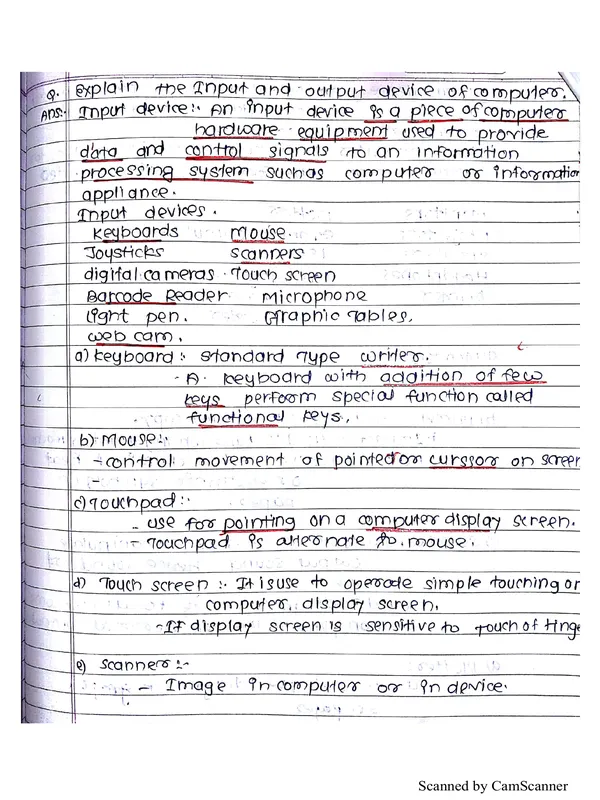 Q. Explain the Input and output device of computer.
Ans:- Input device:- An input device is a piece of computer
hardware equipment used to provide
data and control signals to an information
processing system suchas computer or information
appliance.
Input devices.
Keyboards Mouse.
Joysticks Scanners
digital cameras Touch screen
Barcode Reader Microphone
Light pen. Graphic Tables.
web cam.
a) Keyboard:- Standard Type writer.
- A keyboard with addition of few
keys perform special function called
functional keys.
b) Mouse:-
- control movement of pointed or curssor on screen
c) Touchpad:-
- use for pointing on a computer display screen.
- Touchpad is alternate to mouse.
d) Touch screen:- It is use to operate simple touching on
computer display screen.
- If display screen is sensitive to touch of finge
e) Scanner:-
- Image in computer or in device.
Scanned by CamScanner